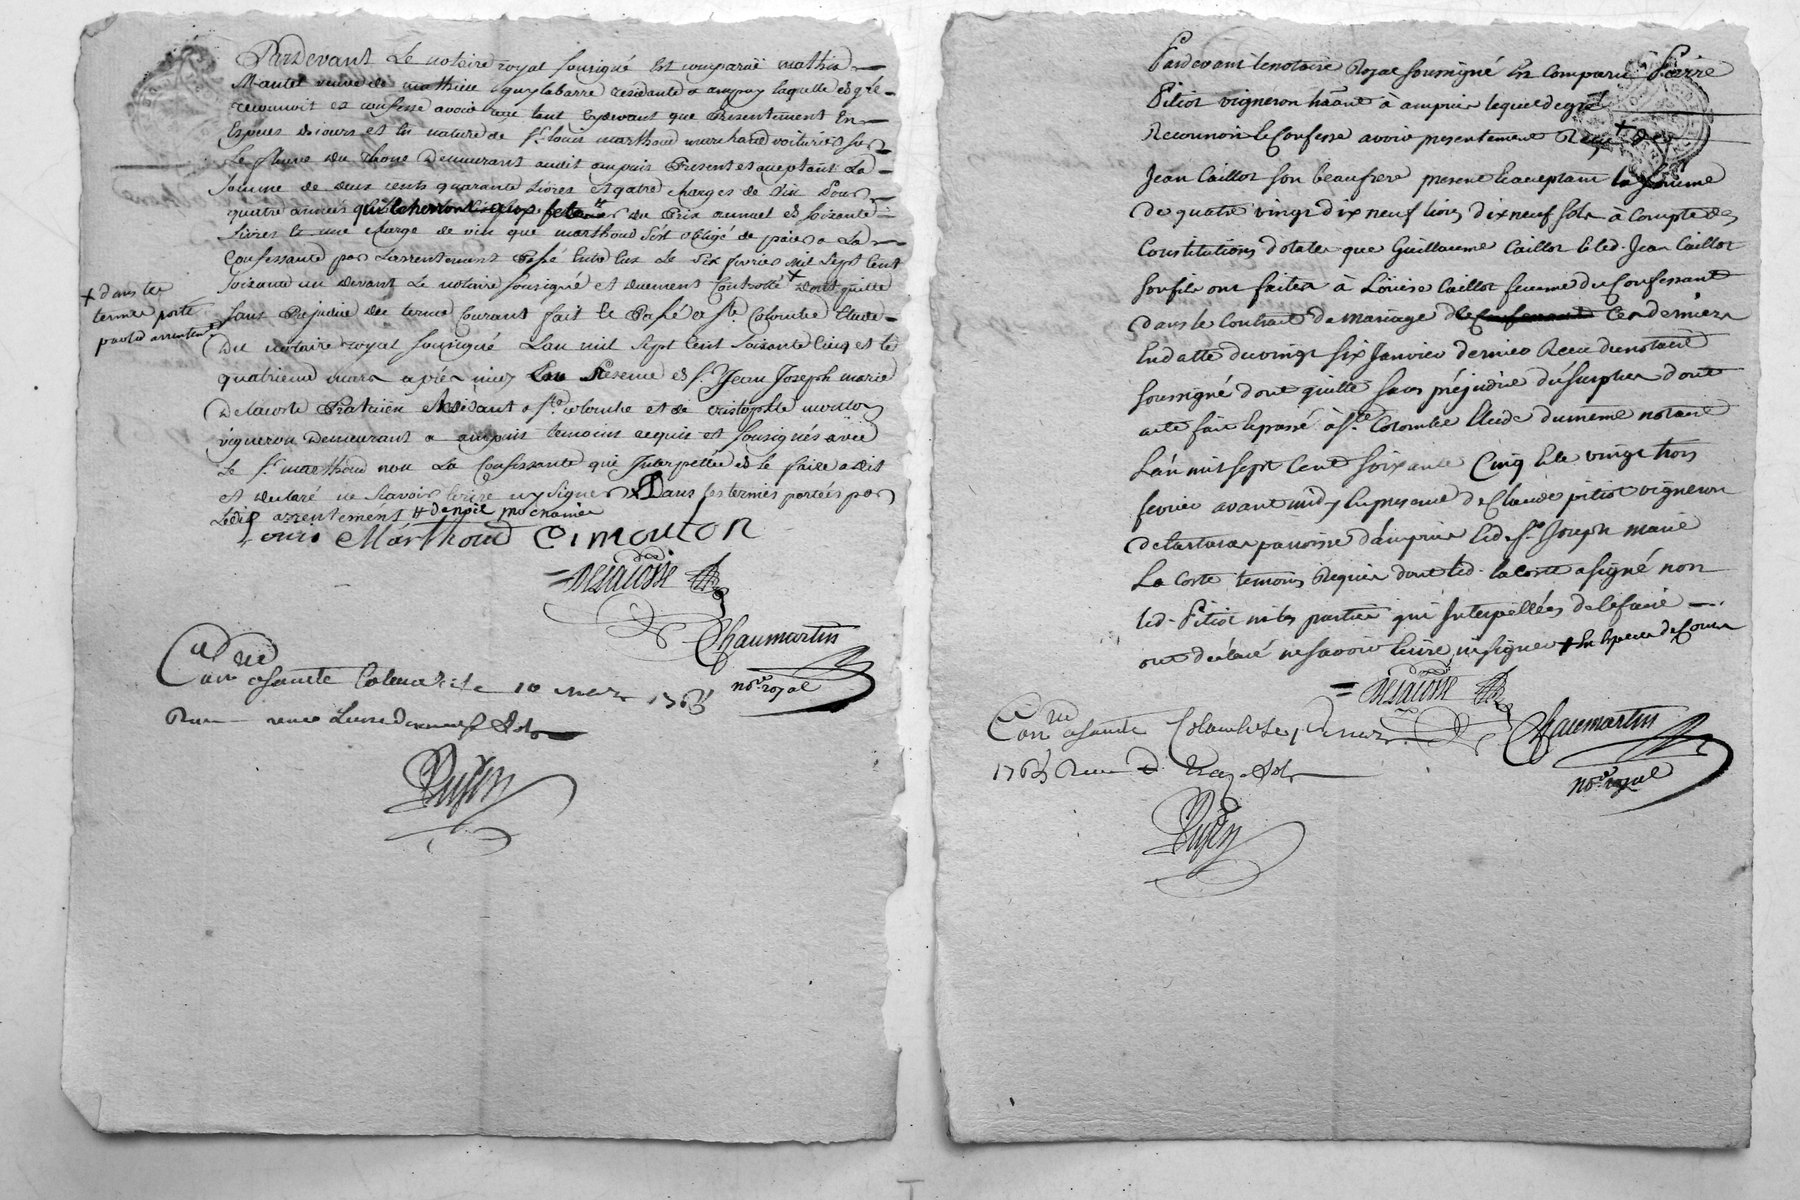 Pardevant Le notaire royal sousigné Est comparüe mathia
Mantel veuve de mathieu quy labarre residante a ampuy laquelle de gré
reconnoit et confesse avoir reçu tant cydevant que Presentement En
Especes de cours et En nature de Sr. Louis marthoud marchand voiturier sur
Le fleuve du rhone Demeurant audit ampuis Present et aceptant La
somme de deux cents quarante Livres et quatre charges de vin Pour
quatre années du Prix annuel de soixante
Livres et une charge de vin que marthoud s'est obligé de paier a La
Confessante par Larrentement Passé Entre Eux Le six fevrier mil sept cent
soixante un devant Le notaire sousigné et duement Controllé + dont quitte
sans Prejudice du terme Courant fait et Passé a Ste. Colombe Etude
Du notaire royal sousigné L'an mil sept cent soixante Cinq et le
quatrieme mars après midy En Presence de Sr. Jean Joseph marie
Delacoste Praticien Residant a Ste colombe et de cristophle mouton
vigneron Demeurant a ampuis temoins requis et sousignés avec
Le Sr. marthoud non La Confessante qui Interpellée de le faire a dit
et declaré ne scavoir Ecrire ny signer + Dans les termes portées par
Ledit arrentement
+ dans les
termes porté
par led arrentement
Louis Marthoud C. mouton
Delacoste
Chaumartin
nore. royal
Con.lé a Sainte Colombe le 10 mars 1765
Reçu
Pardevant le notaire Royal soussigné Est Comparu Pierre
Pitiot vigneron hâant à ampuis lequel de gré
Reconnoit et Confesse avoir presentement Reçu + de
Jean Caillot son beaufrere present et acceptant la somme
de quatre vingt dix neuf livres dix neuf sols à Compte des
Constitutions dotales que Guillaume Caillot et led. Jean Caillot
son fils ont faites à Loüise Caillot femme du Confessant
dans le Contrait de mariage de ces derniers
En datte du vingt six Janvier dernier Recu du notaire
soussigné dont quitte sans préjudice du surplus dont
acte fait et passé à Ste Colombe Etude du meme notaire
L'an mil sept Cent soixante Cinq et le vingt trois
fevrier avant midy En presence de Claude pitiot vigneron
de tartaras paroisse d'ampuis et de Sr. Joseph marie
La Coste temoins Requis dont led. lacoste a signé non
led. Pitiot ni les parties qui Interpellées de le faire
ont déclaré ne savoir Ecrire ni signer + En Espece de Cours
Delacoste
Chaumartin
nore. royal
Con.lé a Sainte Colombe le mars
1765 Reçu